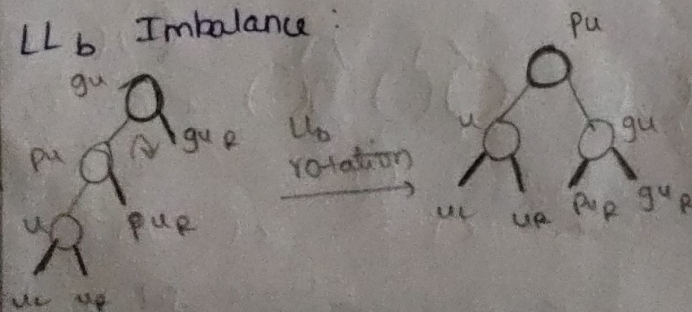 LLb Imbalance :
pu
gu
guR
pu
puR
u
uL uR
LLb
rotation
u
gu
uL uR puR guR